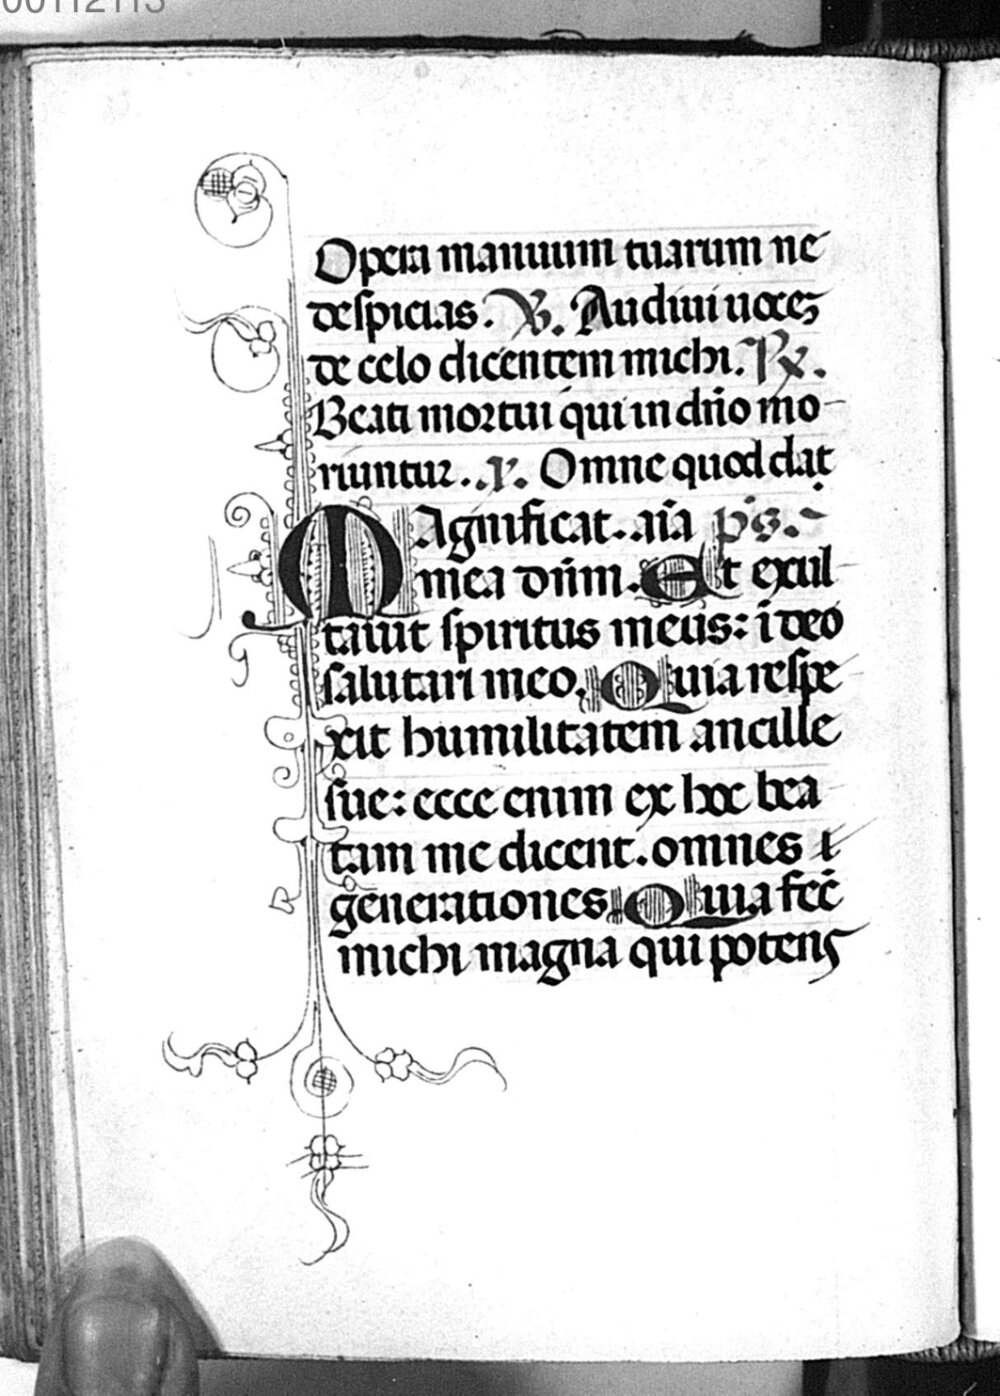 00112113
Opera manuum tuarum ne
despicias. V. Audiui uocez
de celo dicentem michi. Rx.
Beati mortui qui in dn̄o mo
riuntur. . Omne quod dat
Magnificat. aīa p̄s.
mea dūm. Et exul
tauit spiritus meus: ī deo
salutari meo. Quia respe
xit humilitatem ancille
sue: ecce enim ex hoc bea
tam me dicent. omnes
generationes. Quia fec̄
michi magna qui potens